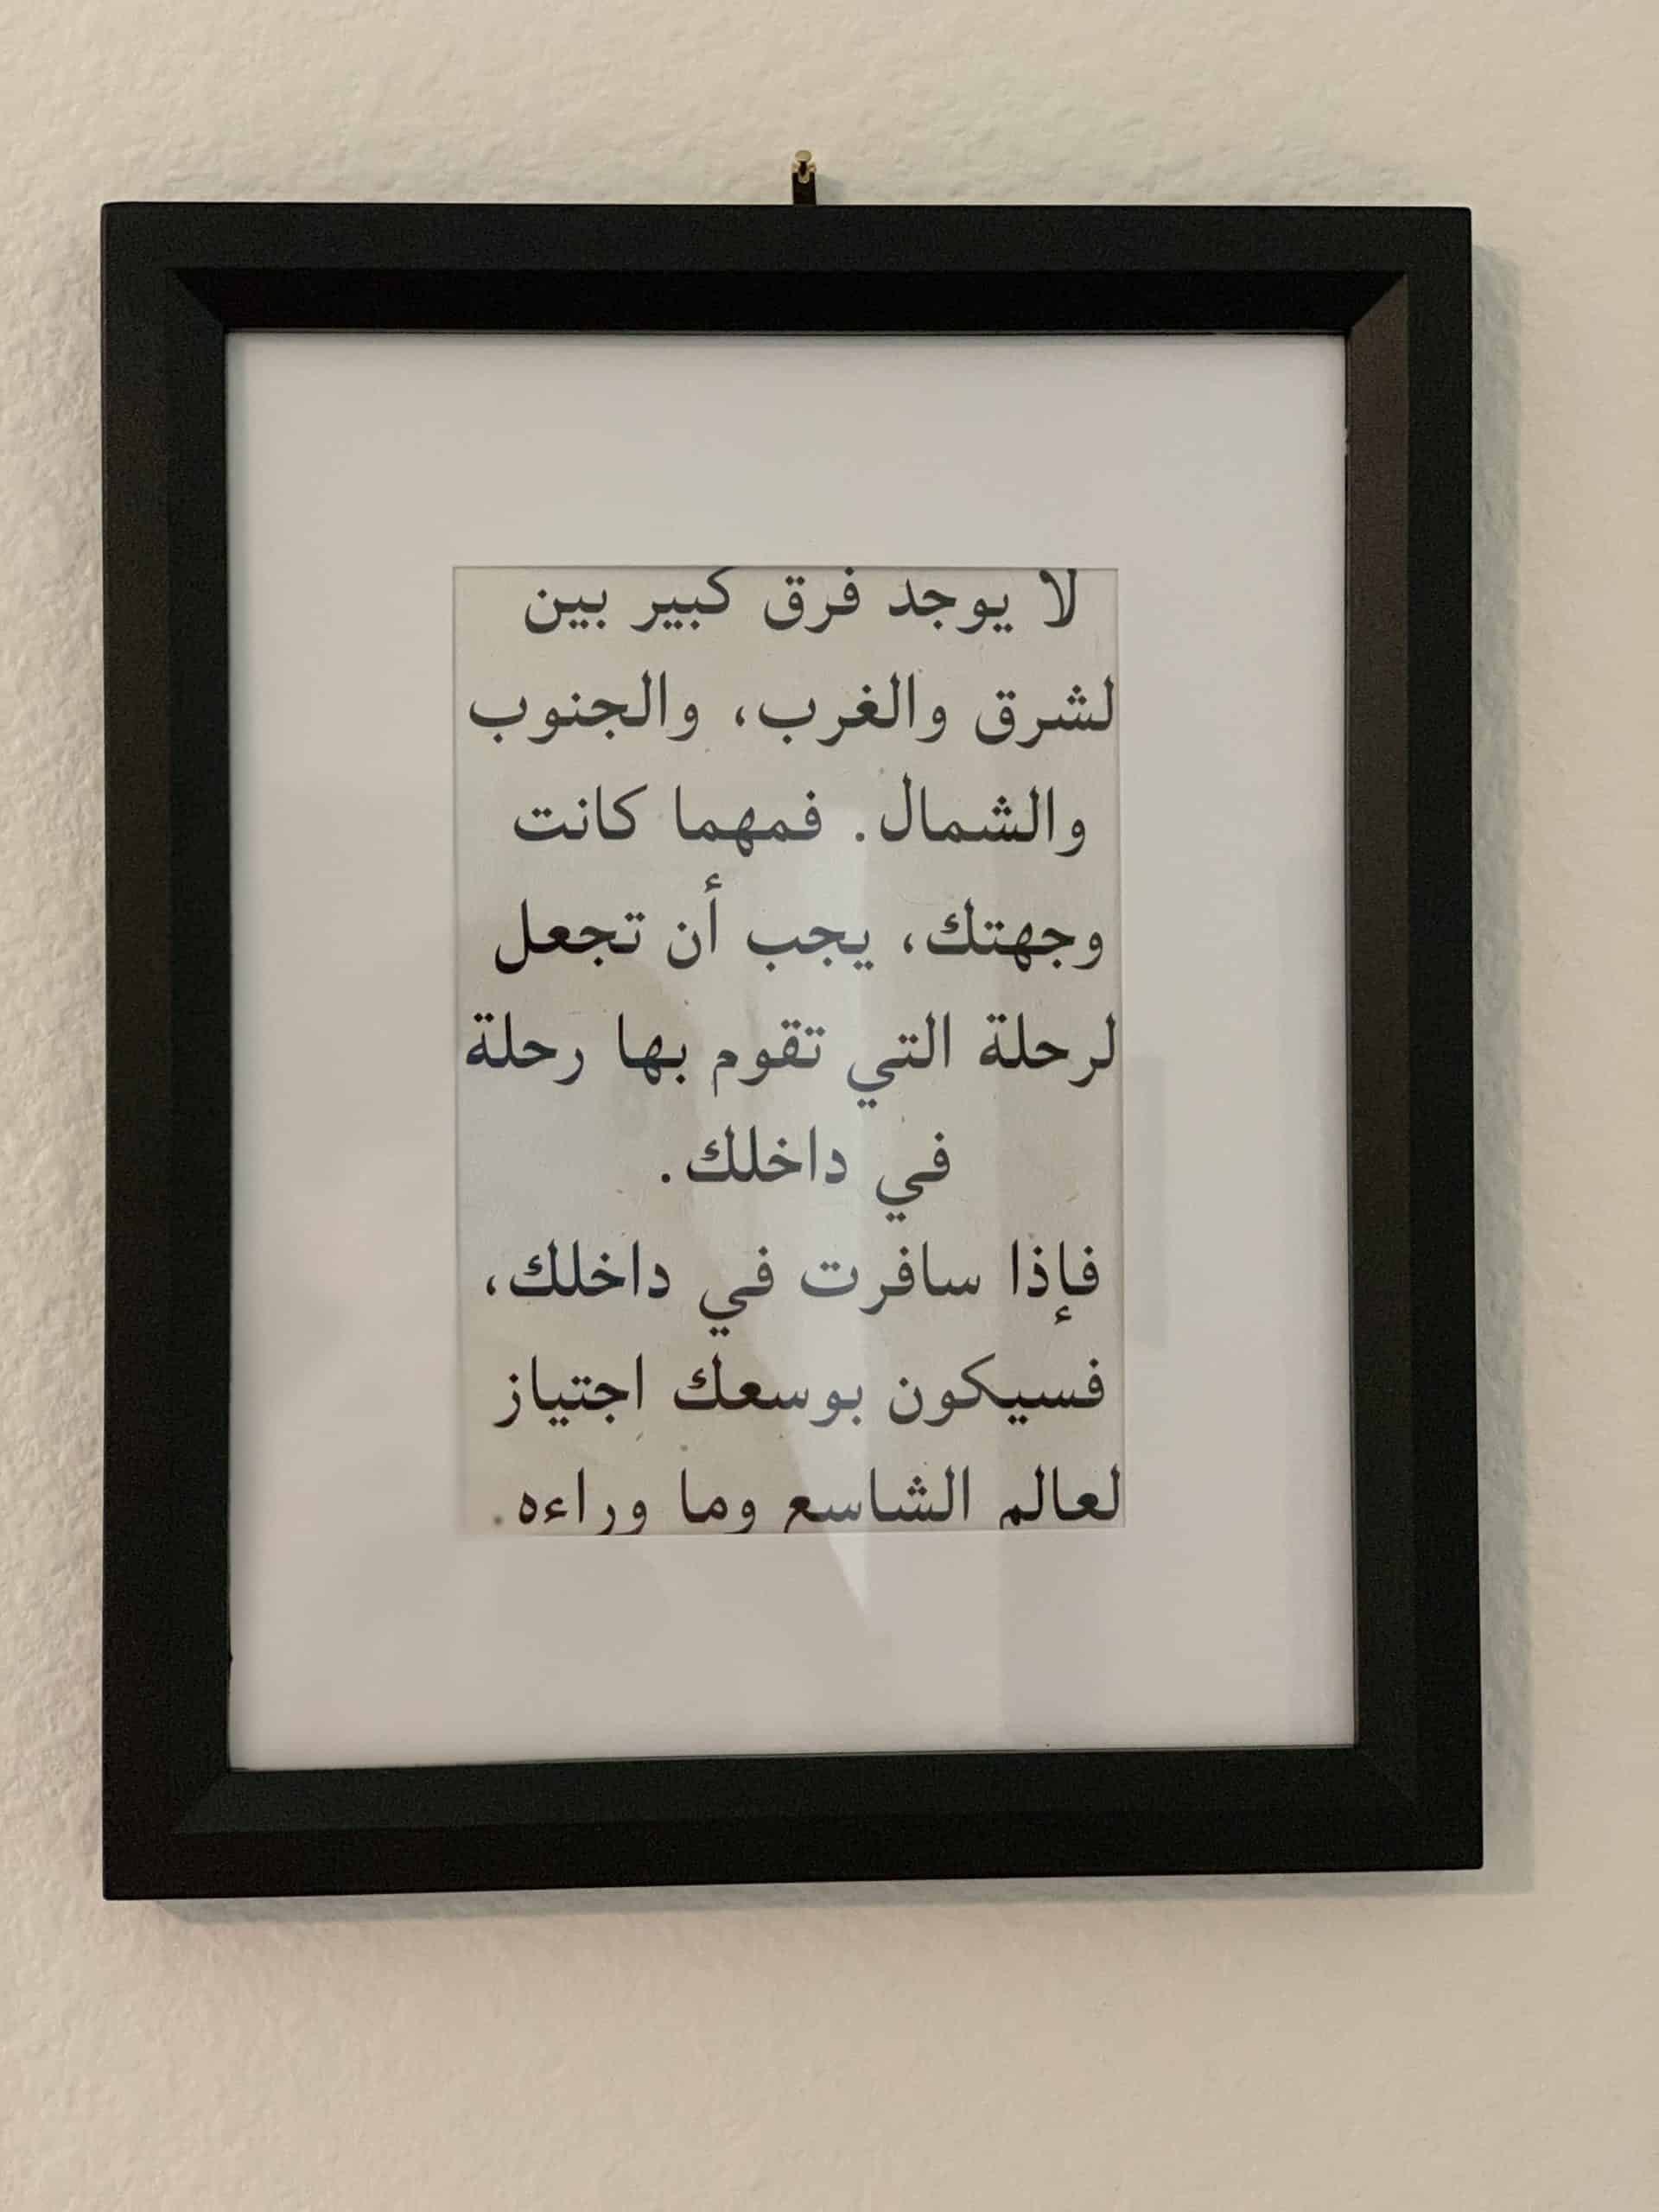 لا يوجد فرق كبير بين
لشرق والغرب، والجنوب
والشمال. فمهما كانت
وجهتك، يجب أن تجعل
لرحلة التي تقوم بها رحلة
في داخلك.
فإذا سافرت في داخلك،
فسيكون بوسعك اجتياز
لعالم الشاسع وما وراءه.